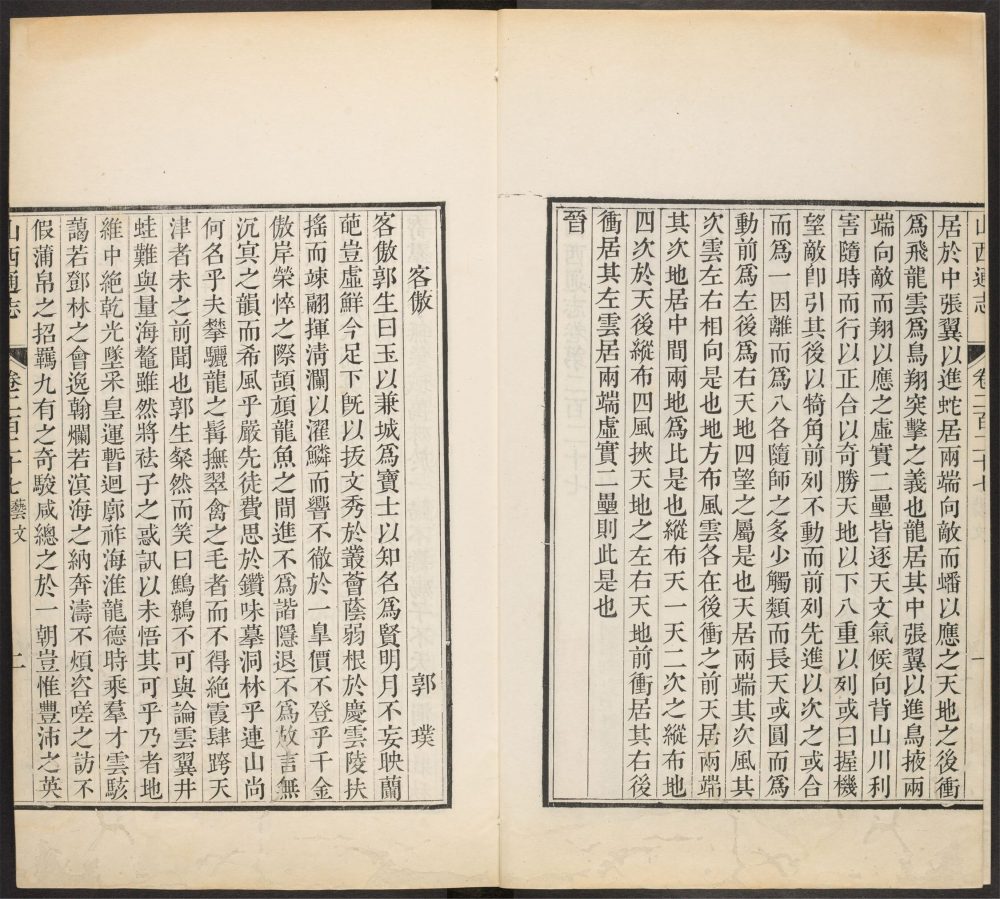 山西通志 卷二百二十七 一
居於中張翼以進蛇居兩端向敵而蟠以應之天地之後衝
爲飛龍雲爲鳥翔突擊之義也龍居其中張翼以進鳥掖兩
端向敵而翔以應之虛實二壘皆逐天文氣候向背山川利
害隨時而行以正合以奇勝天地以下八重以列或曰握機
望敵卽引其後以犄角前列不動而前列先進以次之或合
而爲一因離而爲八各隨師之多少觸類而長天或圓而爲
動前爲左後爲右天地四望之屬是也天居兩端其次風其
次雲左右相向是也地方布風雲各在後衝之前天居兩端
其次地居中間兩地爲此是也縱布天一天二次之縱布地
四次於天後縱布四風挾天地之左右天地前衝居其右後
衝居其左雲居兩端虛實二壘則此是也
晉
客傲 郭璞
客傲郭生曰玉以兼城爲寶士以知名爲賢明月不妄映蘭
葩豈虛鮮今足下旣以拔文秀於叢薈蔭弱根於慶雲陵扶
搖而竦翮揮淸瀾以濯鱗而響不徹於一皐價不登乎千金
傲岸榮悴之際頡頏龍魚之間進不爲諧隱退不爲放言無
沉冥之韻而希風乎嚴先徒費思於鑽味摹洞林乎連山尚
何名乎夫攀驪龍之髯撫翠禽之毛者而不得絕霞肆跨天
津者未之前聞也郭生粲然而笑曰鷦鷯不可與論雲翼井
蛙難與量海鼇雖然將祛子之惑訊以未悟其可乎乃者地
維中絕乾光墜采皇運暫迴廓祚海淮龍德時乘羣才雲駭
藹若鄧林之會逸翰爛若溟海之納奔濤不煩咨嗟之訪不
假蒲帛之招羈九有之奇駿咸總之於一朝豈惟豐沛之英
山西通志 卷二百二十七 藝文 二